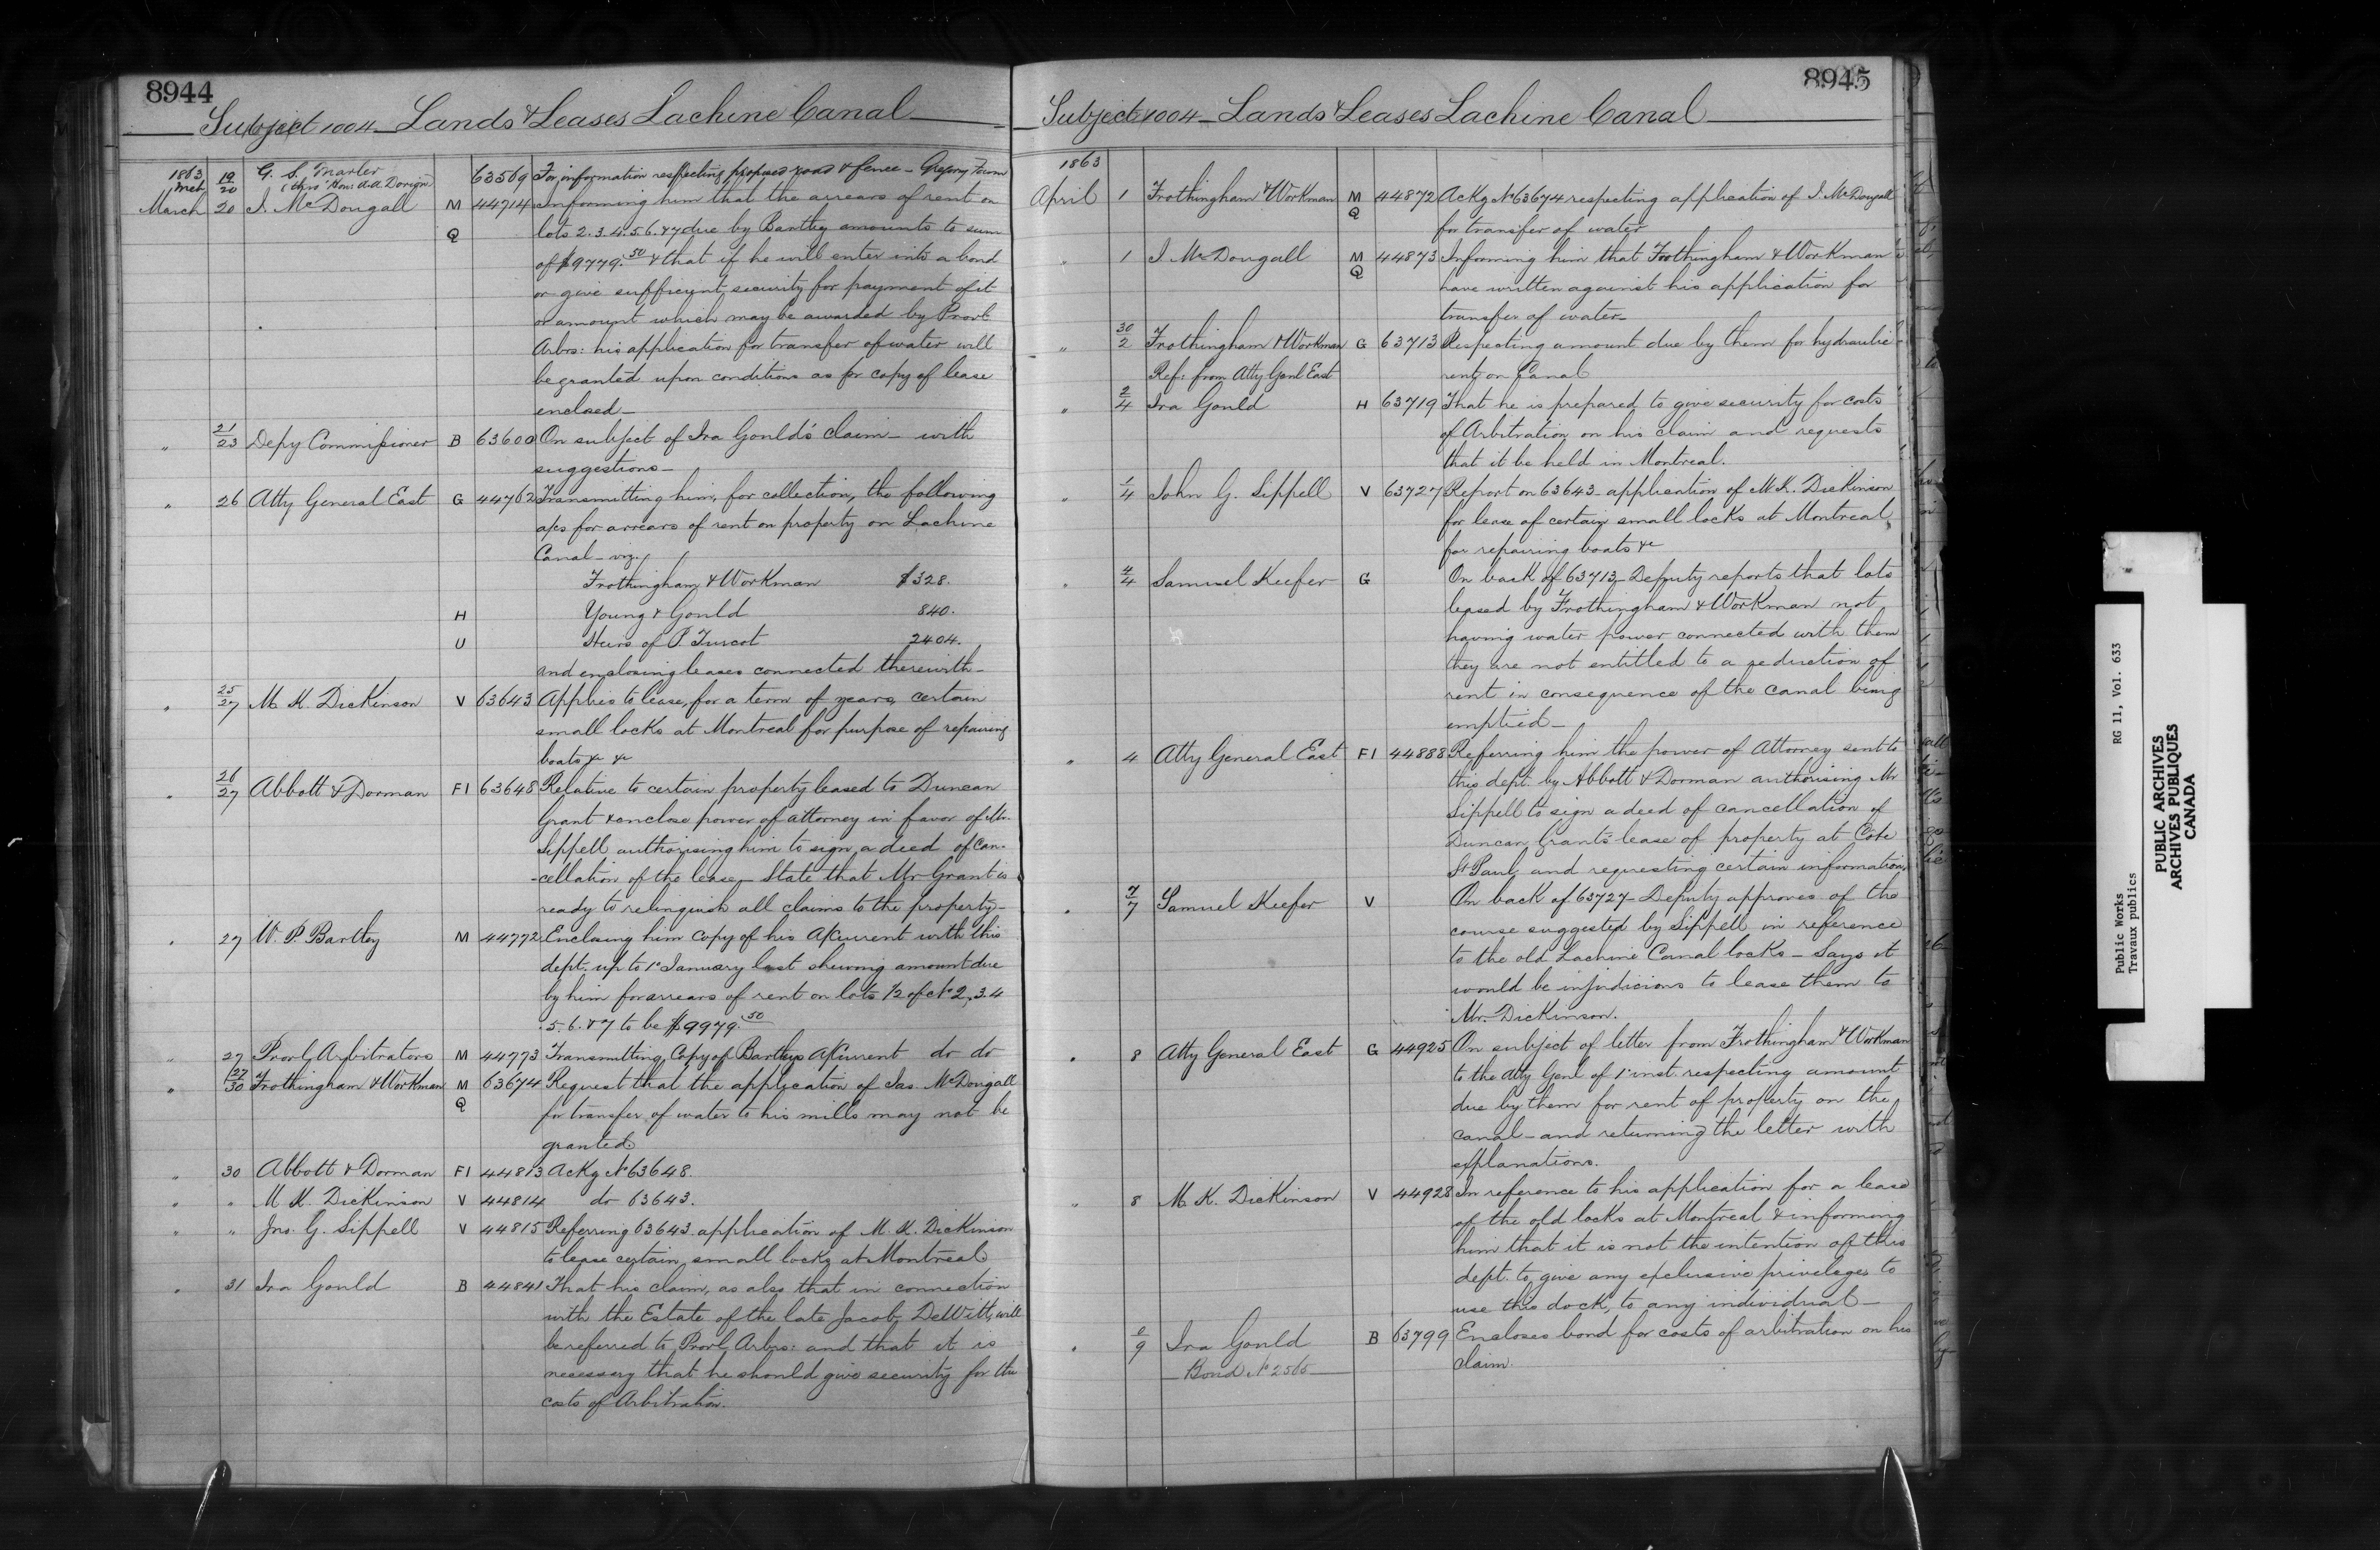 8944
Subject 1004 Lands & Leases Lachine Canal
1863 Mch 19/20 G. S. Marler 63569 For information respecting proposed road & fence - Gregory Farm
(thro' Hon: A.A. Dorion)
March 20 J. McDougall M 44714 Informing him that the arrears of rent on
Q lots 2.3.4.5.6.&7 due by Bartley amounts to sum
of $9779.50 & that if he will enter into a bond
or give sufficient security for payment of it
or amount which may be awarded by Provl
Arbrs: his application for transfer of water will
be granted upon conditions as per copy of lease
enclosed _
" 21/23 Depy Commissioner B 63600 On subject of Ira Gould's claim _ with
suggestions _
" 26 Atty General East G 44762 Transmitting him, for collection, the following
a/cs for arrears of rent on property on Lachine
Canal - viz.
Frothingham & Workman $328.
H Young & Gould 840.
U Heirs of P. Turcot 2404.
and enclosing leases connected therewith _
" 25/27 M. K. Dickinson V 63643 Applies to lease, for a term of years, certain
small locks at Montreal for purpose of repairing
boats &c &c
" 26/27 Abbott & Dorman F1 63648 Relative to certain property leased to Duncan
Grant & enclose power of attorney in favor of Mr.
Sippell authorizing him to sign a deed of can-
-cellation of the lease _ State that Mr Grant is
ready to relinquish all claims to the property _
" 27 W. P. Bartley M 44772 Enclosing him copy of his A/Current with this
dept. up to 1st January last shewing amount due
by him for arrears of rent on lots 1/2 of No 2, 3.4
.5.6.&7 to be $9979.50
" 27 Provl Arbitrators M 44773 Transmitting Copy of Bartleys A/Current do do
" 27/30 Frothingham & Workman M 63674 Request that the application of Jas. McDougall
Q for transfer of water to his mills may not be
granted
" 30 Abbott & Dorman F1 44813 Ackg No 63648.
" " M. K. Dickinson V 44814 do 63643.
" " Jno. G. Sippell V 44815 Referring 63643 application of M. K. Dickinson
to lease certain small locks at Montreal
" 31 Ira Gould B 44841 That his claim, as also that in connection
with the Estate of the late Jacob DeWitt, will
be referred to Provl Arbrs: and that it is
necessary that he should give security for the
costs of Arbitration.
8945
Subject 1004 _ Lands & Leases Lachine Canal
1863
April 1 Frothingham & Workman M 44872 Ackg No 63674 respecting application of J. McDougall
Q for transfer of water
" 1 J. McDougall M 44873 Informing him that Frothingham & Workman
Q have written against his application for
transfer of water _
" 30/2 Frothingham & Workman G 63713 Respecting amount due by them for hydraulic
Ref: from Atty Genl East rent on Canal
" 2/4 Ira Gould H 63719 That he is prepared to give security for costs
of Arbitration on his claim and requests
that it be held in Montreal.
" 1/4 John G. Sippell V 63727 Report on 63643 - application of M. K. Dickinson
for lease of certain small locks at Montreal,
for repairing boats &c
" 4/4 Samuel Keefer G On back of 63713 - Deputy reports that lots
leased by Frothingham & Workman not
having water power connected with them
they are not entitled to a reduction of
rent in consequence of the canal being
emptied _
" 4 Atty General East F1 44888 Referring him the power of Attorney sent to
this dept. by Abbott & Dorman authorising Mr
Sippell to sign a deed of cancellation of
Duncan Grant's lease of property at Cote
St Paul, and requesting certain information,
" 7/7 Samuel Keefer V On back of 63727 - Deputy approves of the
course suggested by Sippell in reference
to the old Lachine Canal locks _ Says it
would be injudicious to lease them to
Mr. Dickinson.
" 8 Atty General East G 44925 On subject of letter from Frothingham & Workman
to the Atty Genl of 1st inst. respecting amount
due by them for rent of property on the
canal - and returning the letter with
explanations.
" 8 M. K. Dickinson V 44928 In reference to his application for a lease
of the old locks at Montreal & informing
him that it is not the intention of this
dept. to give any exclusive privileges to
use this dock, to any individual _
" 9 Ira Gould B 63799 Encloses bond for costs of arbitration on his
Bond No 2565 claim.
Public Works RG 11, Vol. 633
Travaux publics
PUBLIC ARCHIVES
ARCHIVES PUBLIQUES
CANADA